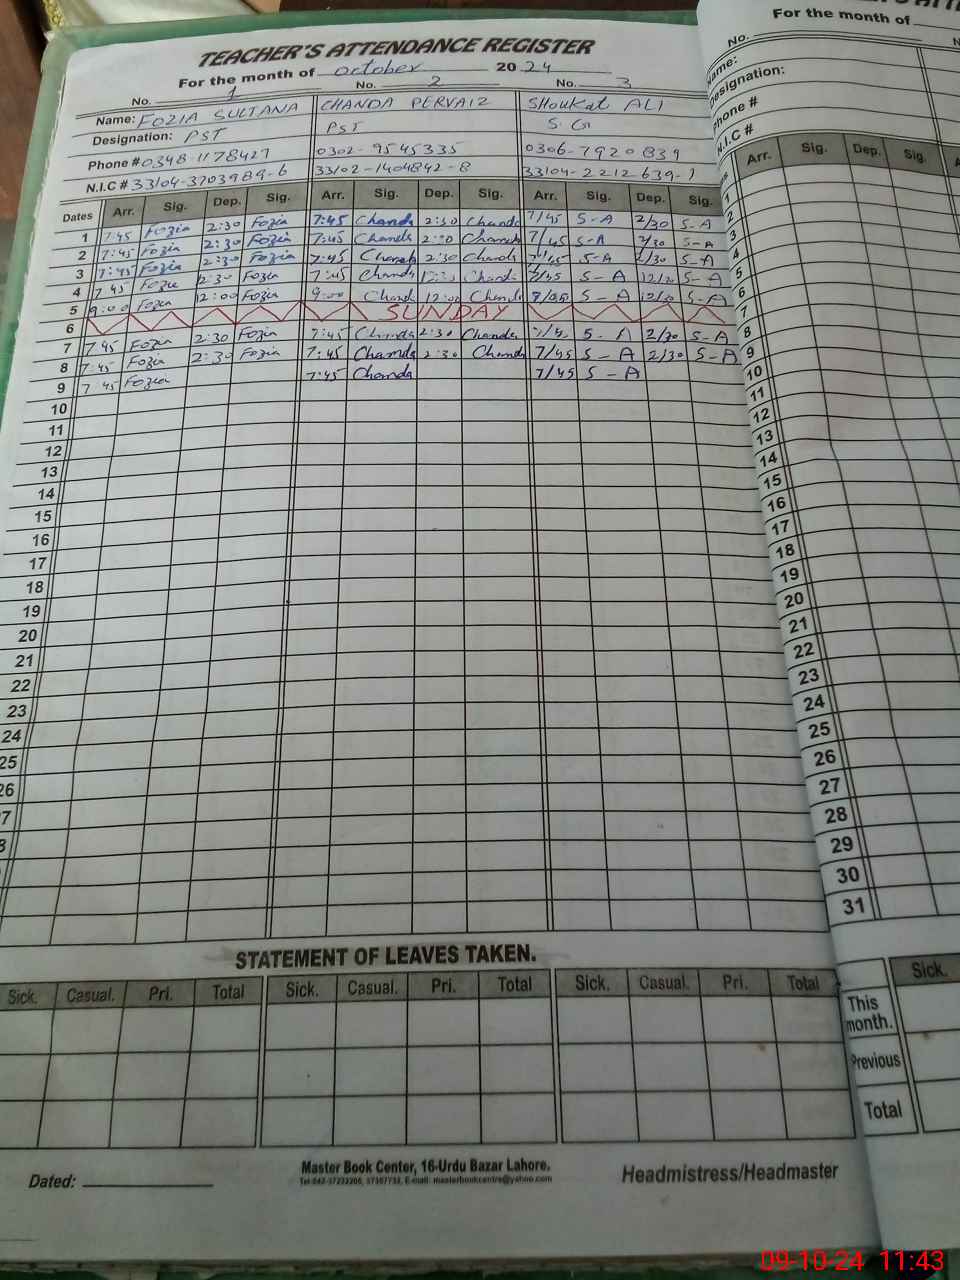 TEACHER'S ATTENDANCE REGISTER
For the month of October 2024
No. 1 No. 2 No. 3
Name: FOZIA SULTANA CHANDA PERVAIZ SHOUKAT ALI
Designation: PST PST S.G
Phone # 0348-1178427 0302-9545335 0306-7920839
N.I.C # 33104-3703989-6 33102-1404842-8 33104-2212639-1
Dates Arr. Sig. Dep. Sig. Arr. Sig. Dep. Sig. Arr. Sig. Dep. Sig.
1 7:45 Fozia 2:30 Fozia 7:45 Chanda 2:30 Chanda 7/45 S-A 2/30 S-A
2 7:45 Fozia 2:30 Fozia 7:45 Chanda 2:30 Chanda 7/45 S-A 2/30 S-A
3 7:45 Fozia 2:30 Fozia 7:45 Chanda 2:30 Chanda 7/45 S-A 2/30 S-A
4 7:45 Fozia 2:30 Fozia 7:45 Chanda Chanda 7/45 S-A S-A
5 9:00 Fozia 12:00 Fozia 9:00 Chand 12:00 Chanda S-A S-A
6 SUNDAY
7 7:45 Fozia 2:30 Fozia 7:45 Chanda 2:30 Chanda S-A 2/30 S-A
8 7:45 Fozia 2:30 Fozia 7:45 Chanda 2:30 Chanda 7/45 S-A 2/30 S-A
9 7:45 Fozia 7:45 Chanda 7/45 S-A
10
11
12
13
14
15
16
17
18
19
20
21
22
23
24
25
26
STATEMENT OF LEAVES TAKEN.
Sick. Casual. Pri. Total Sick. Casual. Pri. Total Sick. Casual. Pri. Total
Dated:
Master Book Center, 16-Urdu Bazar Lahore.
Headmistress/Headmaster
For the month of
No.
Name:
Designation:
Phone #
N.I.C #
Arr. Sig. Dep. Sig.
1
2
3
4
5
6
7
8
9
10
11
12
13
14
15
16
17
18
19
20
21
22
23
24
25
26
27
28
29
30
31
Sick.
This month.
Previous
Total
09-10-24 11:43